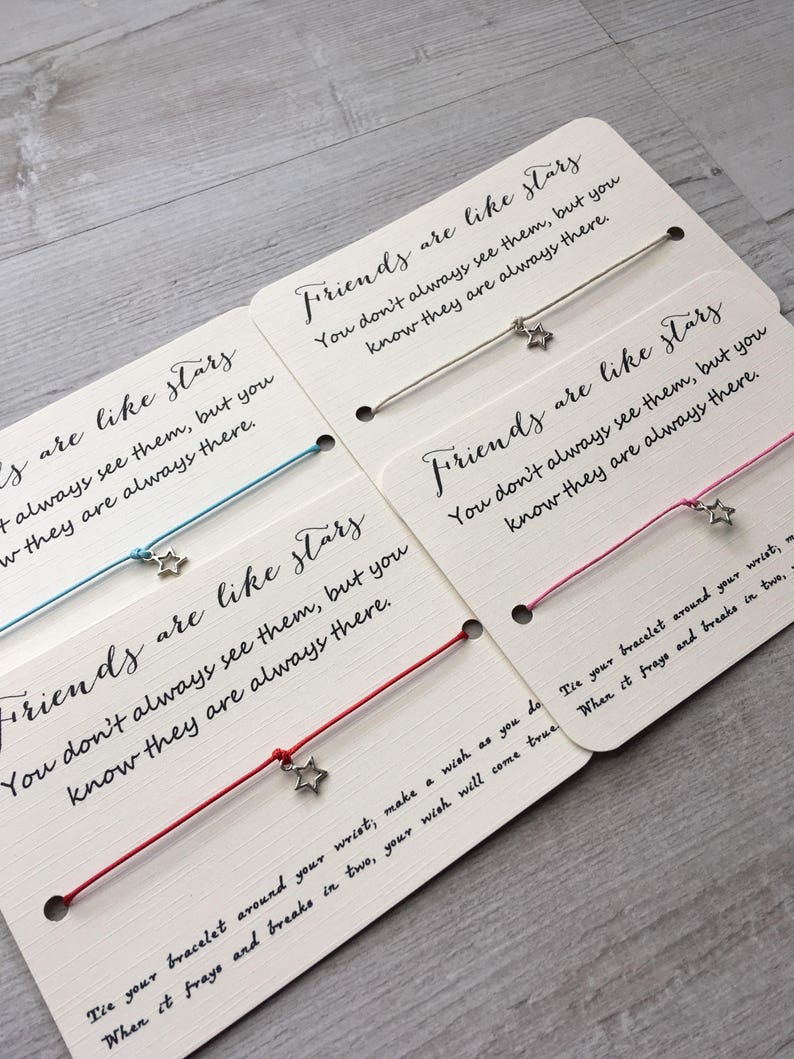 Friends are like stars
You don't always see them, but you
know they are always there.
are like stars
always see them, but you
they are always there.
Friends are like stars
You don't always see them, but you
know they are always there.
Tie your bracelet around your wrist,
When it frays and breaks in two,
Friends are like stars
You don't always see them, but you
know they are always there.
Tie your bracelet around your wrist, make a wish as you do
When it frays and breaks in two, your wish will come true